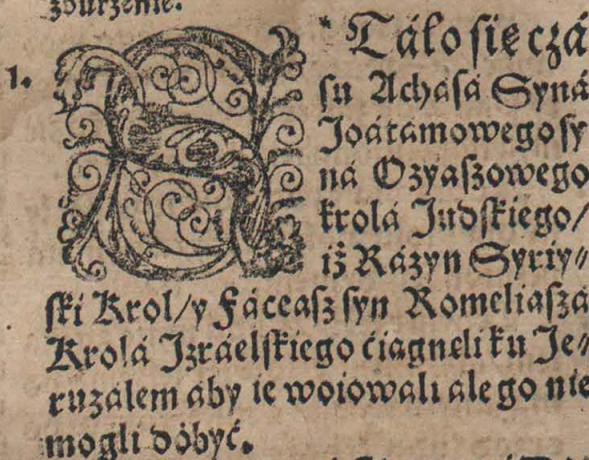 zburzenie.
1. STáło się czá
su Achásá Syná
Joátamowego sy
ná Ozyaszowego
krolá Judskiego/
iż Rázyn Syriy⸗
ski Krol/y Fáceasz syn Romeliaszá
Krolá Izráelskiego ćiągnęli ku Je⸗
ruzalem áby ie woiowáli ále go nie
mogli dobyć.